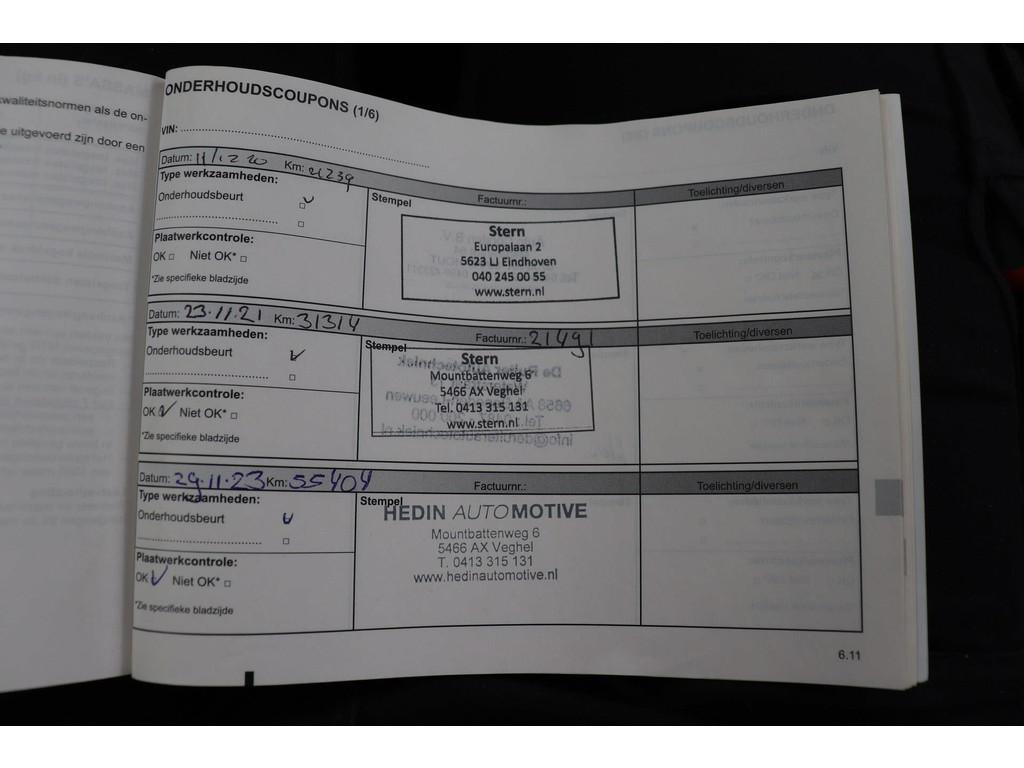 kwaliteitsnormen als de on-
e uitgevoerd zijn door een
ONDERHOUDSCOUPONS (1/6)
VIN:
Datum: 11/12 20 Km: 21239
Type werkzaamheden:
Onderhoudsbeurt
Plaatwerkcontrole:
OK □ Niet OK* □
*Zie specifieke bladzijde
Stempel
Factuurnr.:
Toelichting/diversen
Stern
Europalaan 2
5623 LJ Eindhoven
040 245 00 55
www.stern.nl
Datum: 23.11.21 Km: 31314
Type werkzaamheden:
Onderhoudsbeurt
Plaatwerkcontrole:
OK Niet OK* □
*Zie specifieke bladzijde
Stempel
Factuurnr.: 21491
Toelichting/diversen
Stern
Mountbattenweg 6
5466 AX Veghel
Tel. 0413 315 131
www.stern.nl
Datum: 29.11.23 Km: 55404
Type werkzaamheden:
Onderhoudsbeurt
Plaatwerkcontrole:
OK Niet OK* □
*Zie specifieke bladzijde
Stempel
Factuurnr.:
Toelichting/diversen
HEDIN AUTOMOTIVE
Mountbattenweg 6
5466 AX Veghel
T. 0413 315 131
www.hedinautomotive.nl
6.11